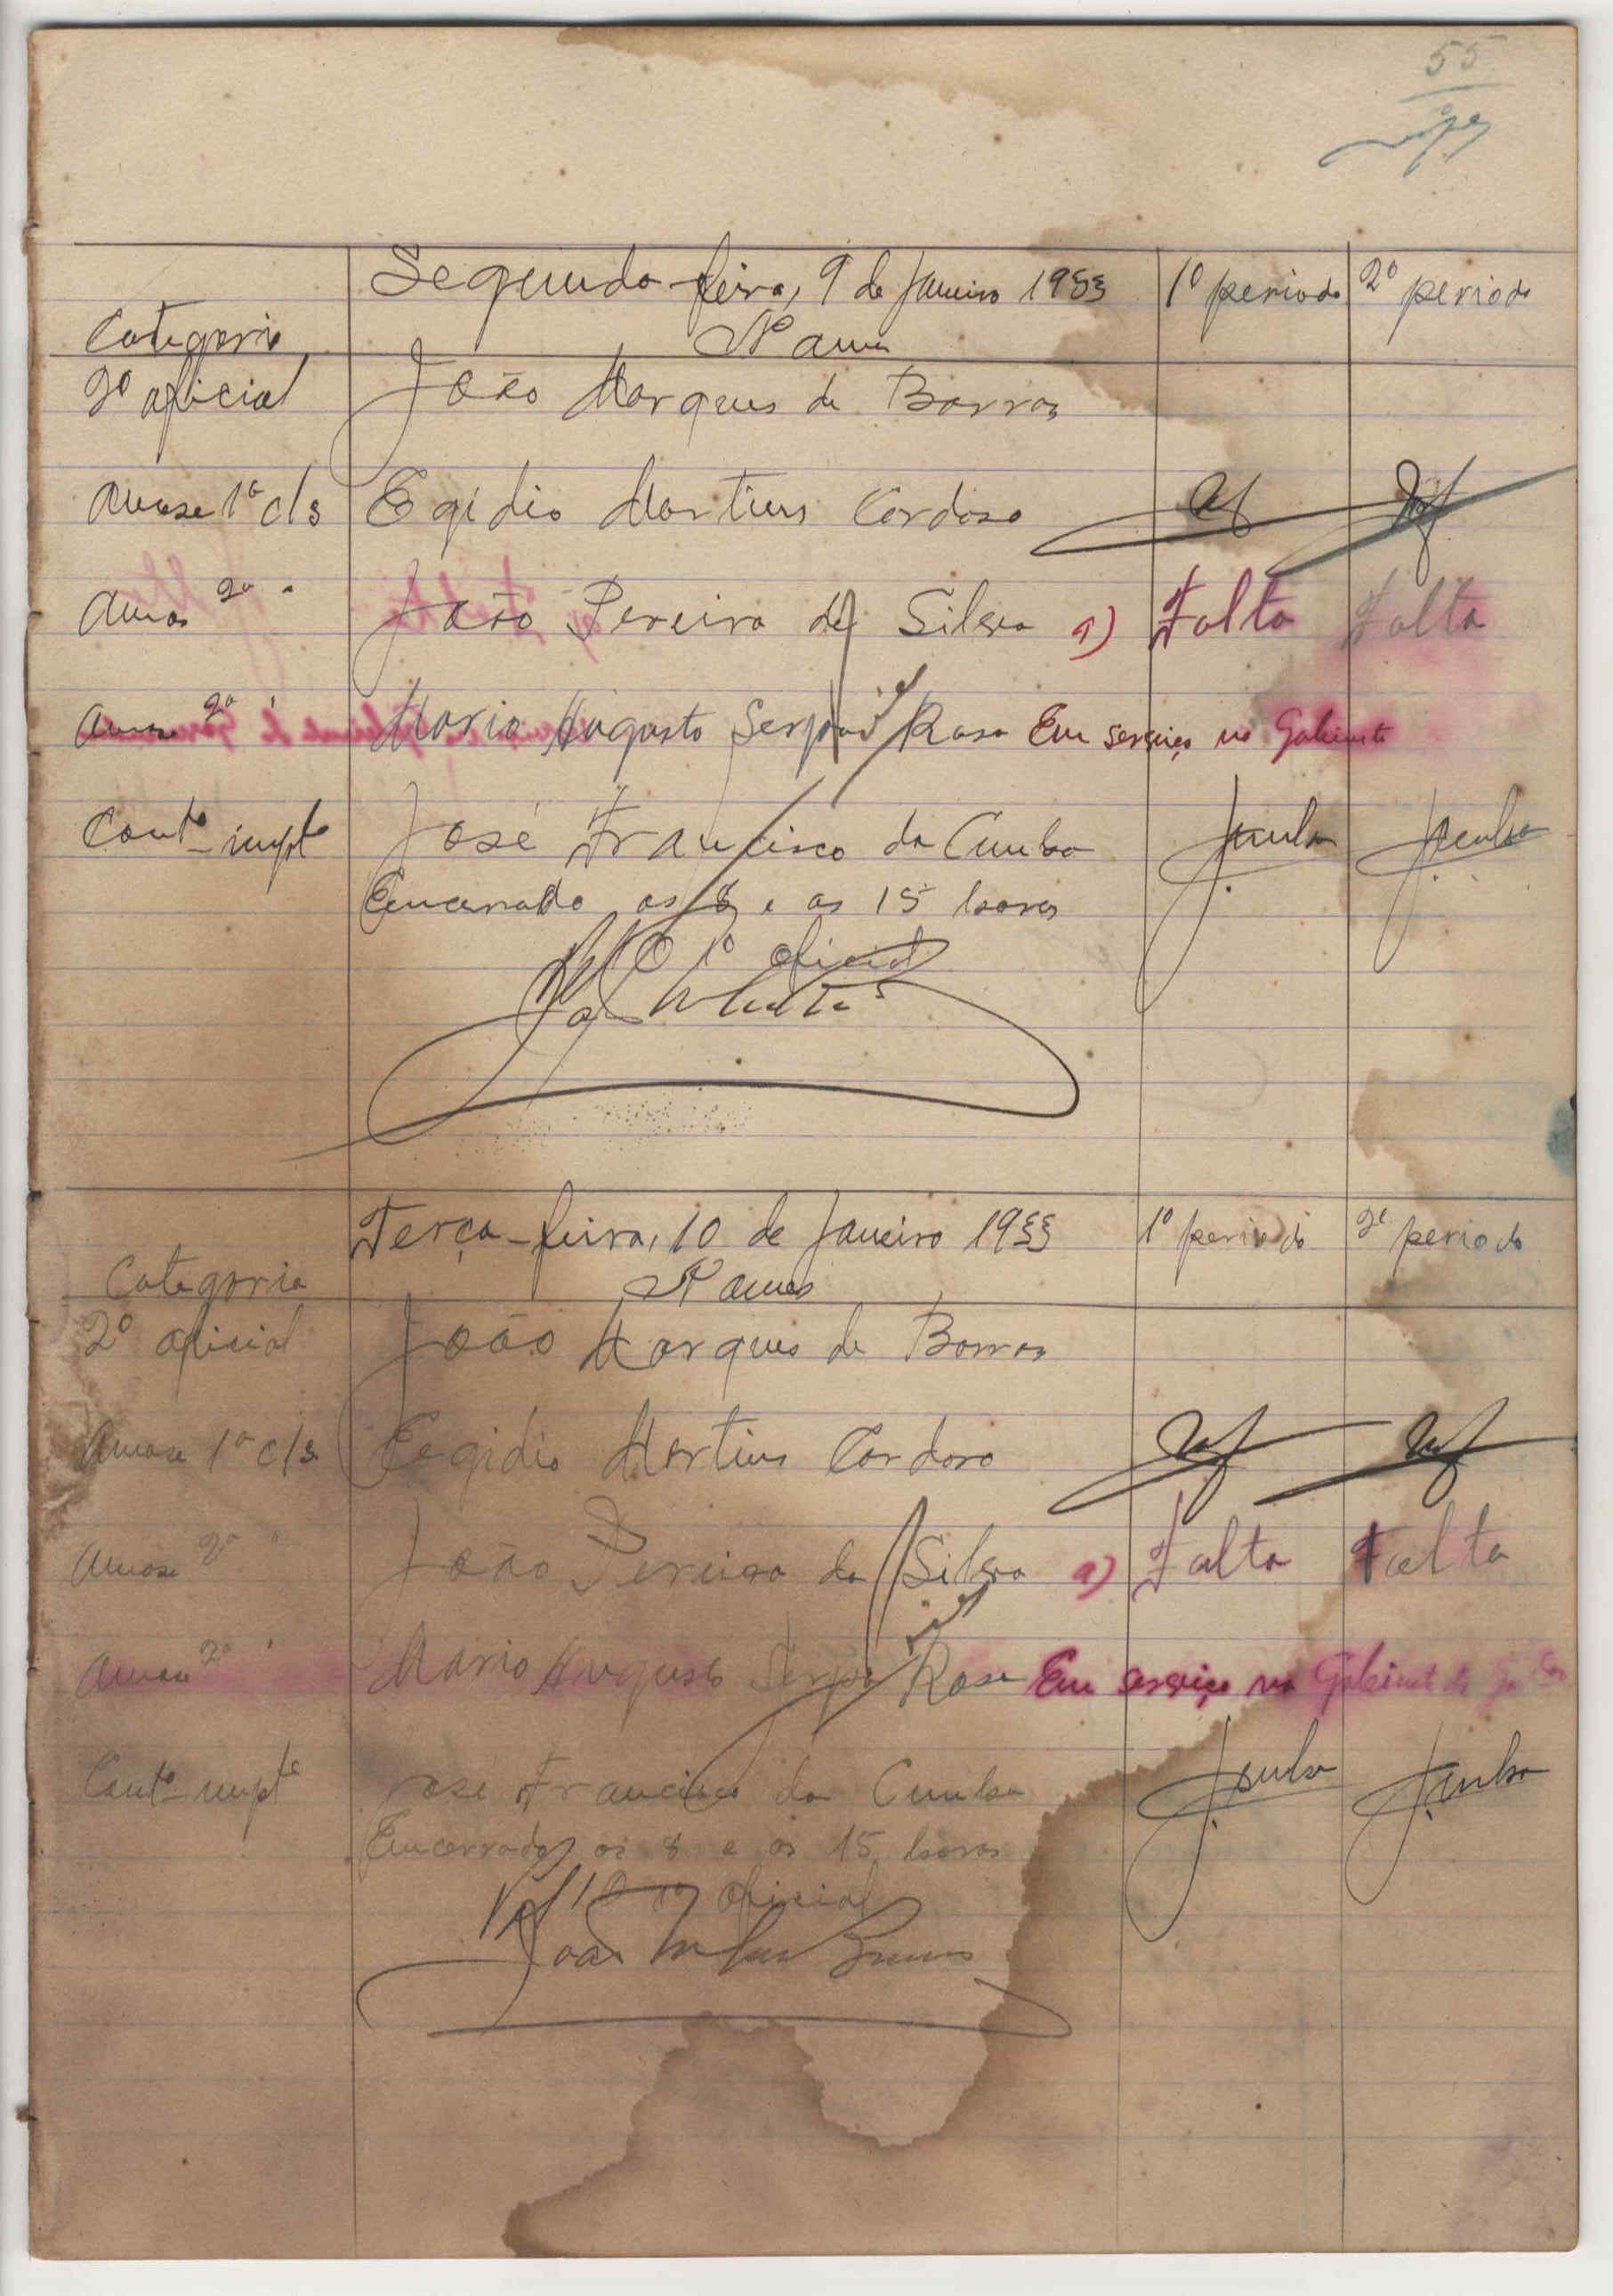 55
Segunda-feira, 9 de Janeiro 1933 1º periodo 2º periodo
Categoria Nomes
2º oficial João Marques de Barros
Amse 1ª cls Egidio Martins Cardoso
2ª " João Pereira da Silva a) Falta Falta
2ª " Mario Augusto Serpa Rosa Em serviço no Gabinete
Contº impte José Francisco da Cunha JCunha JCunha
Encerrado as 8 e as 15 horas
O 1º oficial
Terça-feira, 10 de Janeiro 1933 1º periodo 2º periodo
Categoria Nomes
2º oficial João Marques de Barros
Amse 1ª cls Egidio Martins Cardoso
2ª " João Pereira da Silva a) Falta Falta
2ª " Mario Augusto Serpa Rosa Em serviço no Gabinete do
Contº impte José Francisco da Cunha JCunha JCunha
Encerrado as 8 e as 15 horas
O 1º oficial